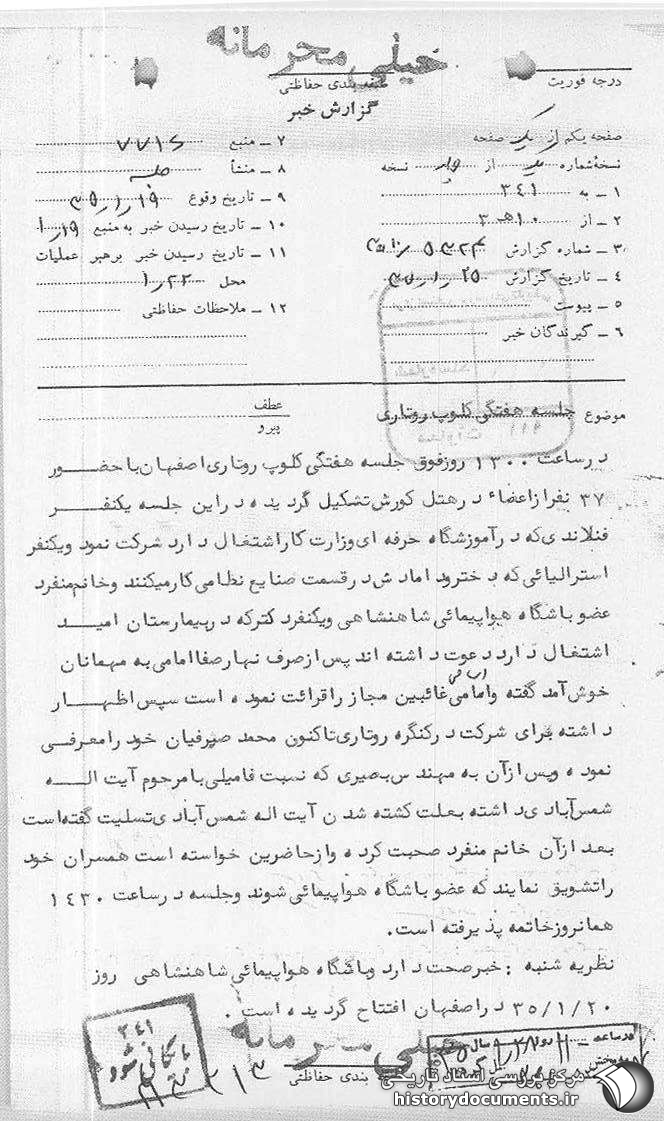 خیلی محرمانه
درجه فوریت
طبقه بندی حفاظتی
گزارش خبر
صفحه یکم از یک صفحه
نسخهٔ شماره از نسخه
۱ ـ به ۳۴۱
۲ ـ از ۱۰هـ۳
۳ ـ شماره گزارش
۴ ـ تاریخ گزارش
۵ ـ پیوست
۶ ـ گیرندگان خبر
۷ ـ منبع
۸ ـ منشأ جلسه
۹ ـ تاریخ وقوع
۱۰ ـ تاریخ رسیدن خبر به منبع ۱٫۱۹
۱۱ ـ تاریخ رسیدن خبر برهبر عملیات
محل ۱٫۲۲
۱۲ ـ ملاحظات حفاظتی
موضوع جلسه هفتگی کلوپ روتاری
عطف
پیرو
درساعت ۱۳۰۰ روزفوق جلسه هفتگی کلوپ روتاری اصفهان باحضور
۳۷ نفرازاعضاء درهتل کورش تشکیل گردیده دراین جلسه یکنفر
فنلاندی که درآموزشگاه حرفه ای وزارت کاراشتغال دارد شرکت نمود ویکنفر
استرالیائی که دخترودامادش درقسمت صنایع نظامی کارمیکنند وخانم منفرد
عضو باشگاه هواپیمائی شاهنشاهی ویکنفردکترکه دربیمارستان امید
اشتغال دارد دعوت داشته اند پس ازصرف نهارصفاامامی به مهمانان
خوش آمد گفته واسامی غائبین مجاز راقرائت نموده است سپس اظهار
داشته برای شرکت درکنگره روتاری تاکنون محمد صیرفیان خود رامعرفی
نموده وپس ازآن به مهندس بصیری که نسبت فامیلی بامرحوم آیت اله
شمس آبادی داشته بعلت کشته شدن آیت اله شمس آبادی تسلیت گفته است
بعد ازآن خانم منفرد صحبت کرده وازحاضرین خواسته است همسران خود
راتشویق نمایند که عضو باشگاه هواپیمائی شوند وجلسه درساعت ۱۴۳۰
همانروزخاتمه پذیرفته است.
نظریه شنبه : خبرصحت دارد وباشگاه هواپیمائی شاهنشاهی روز
۳۵/۱/۲۰ دراصفهان افتتاح گردیده است .
خیلی محرمانه
طبقه بندی حفاظتی
۳۴۱
بایگانی شود
درساعت
مرکز بررسی اسناد تاریخی
historydocuments.ir